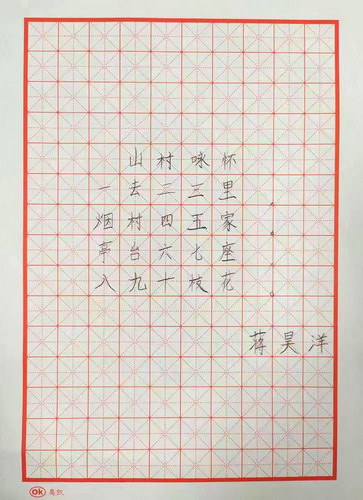 山村咏怀
一去二三里，
烟村四五家，
亭台六七座，
八九十枝花。
蒋昊洋
OK